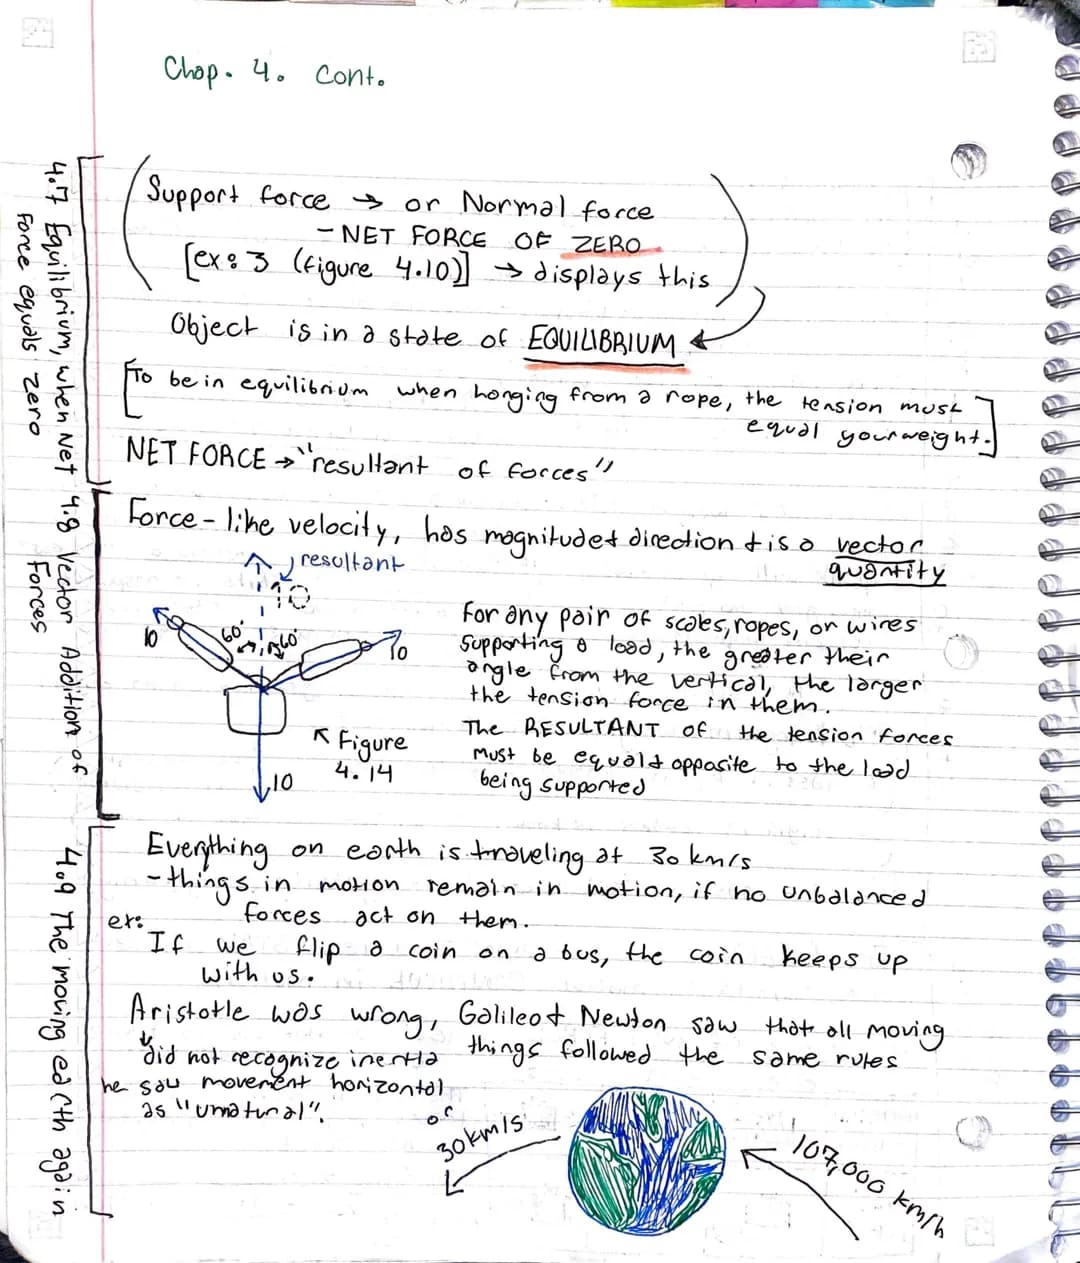 Chap. 4. Cont.
4.7 Equilibrium, when Net
Force equals zero
Support force → or Normal force
- NET FORCE OF ZERO
[ex: 3 (figure 4.10)] → displays this
Object is in a state of EQUILIBRIUM
[To be in equilibrium when hanging from a rope, the tension must
equal your weight.]
NET FORCE → "resultant of forces"
4.8 Vector Addition of
Forces
Force - like velocity, has magnitude + direction + is a vector
quantity
resultant
10
10
60°
60°
10
10
↖ Figure
4.14
For any pair of scales, ropes, or wires
supporting a load, the greater their
angle from the vertical, the larger
the tension force in them.
The RESULTANT of the tension forces
must be equal + opposite to the load
being supported
4.9 The moving earth again
Everything on earth is traveling at 30 km/s
- things in motion remain in motion, if no unbalanced
forces act on them.
ex:
If we flip a coin on a bus, the coin keeps up
with us.
Aristotle was wrong, Galileo + Newton saw that all moving
things followed the same rules
did not recognize inertia
he saw movement horizontal
as "unatural".
or
30 km/s
107,000 km/h